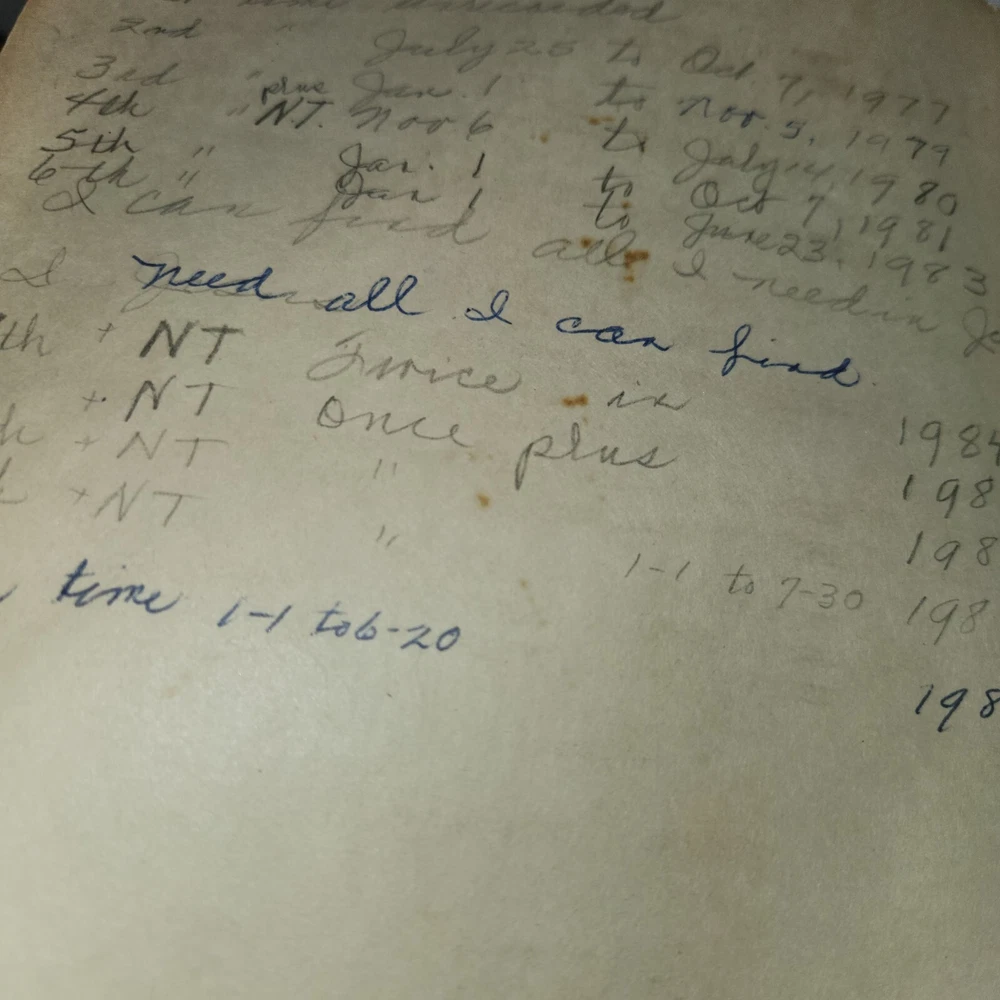 time unrecorded
2nd " July 25 to Oct 7, 1977
3rd " Jan. 1 to Nov. 5, 1979
4th " plus NT. Nov 6 to July 4, 1980
5th " Jan. 1 to Oct 7, 1981
6th " Jan 1 to June 23, 1983
I can find all I need in
I need all I can find.
th + NT Twice in 1984
+ NT Once plus 198
+ NT " 198
+ NT " 1-1 to 7-30 198
time 1-1 to 6-20 198